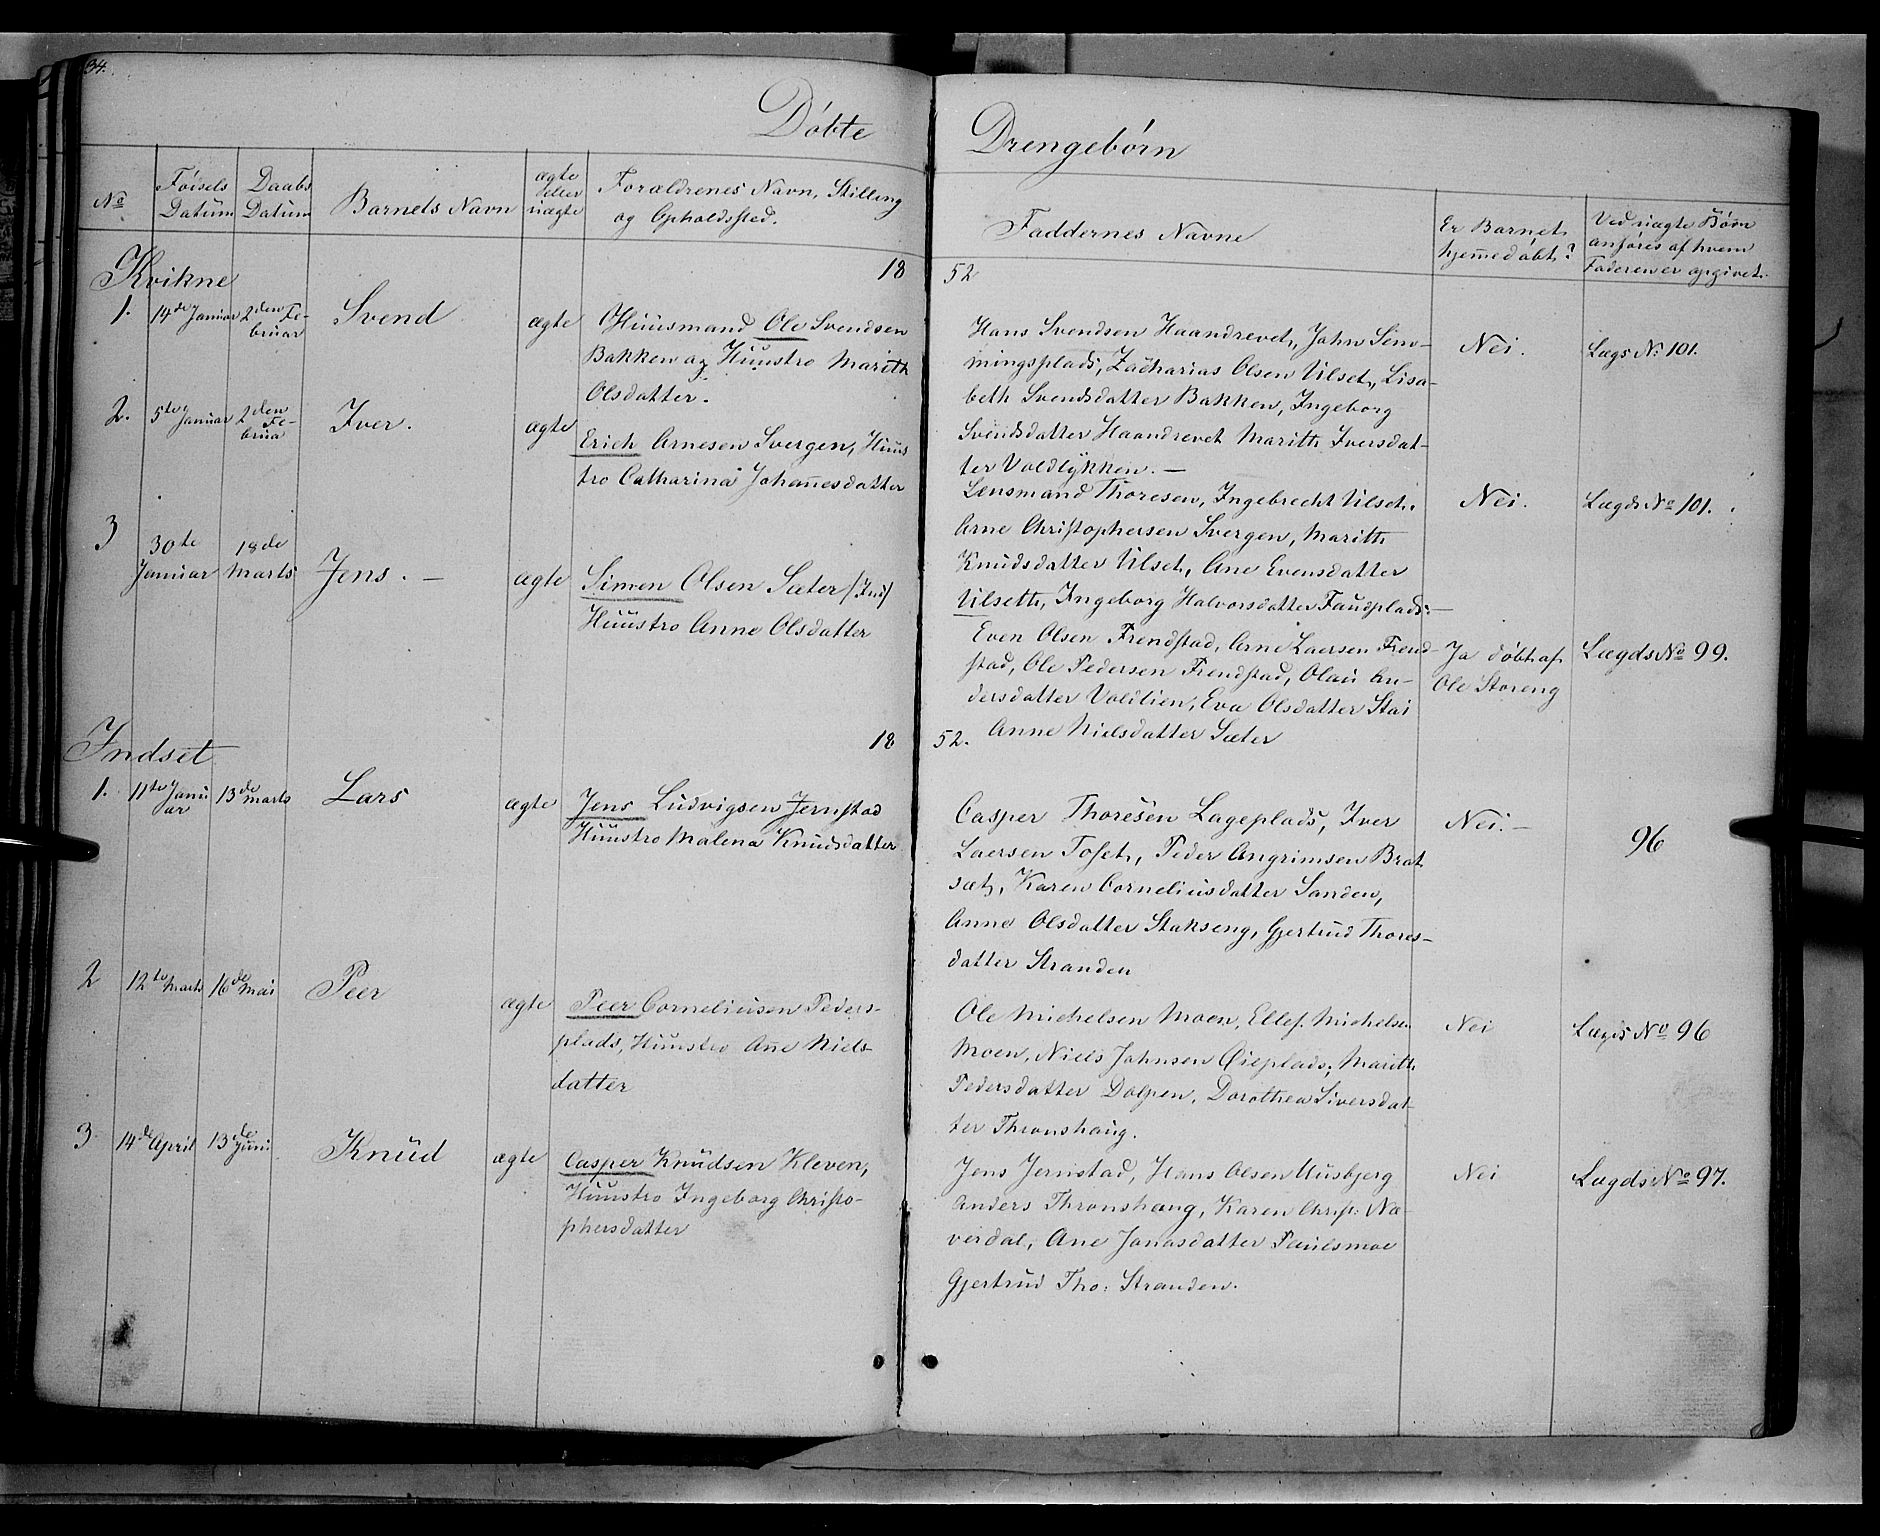 34.
Døbte
Drengebørn
No
Føsels Datum
Daabs Datum
Barnets Navn
ægte eller uægte
Forældrenes Navn, Stilling
og Opholdssted.
Faddernes Navne
Er Barnet
hjemmedøbt?
Ved uægte Børn
anføres af hvem
Faderen er opgivet.
Kvikne
18
52
1.
14de Januar
2den Februar
Svend
ægte
Huusmand Ole Svendsen
Bakken og Huustro Marith
Olsdatter.
Hans Svendsen Haandrevet, John
mingsplads, Zacharias Olsen Vilset, Lisa-
beth Svendsdatter Bakken, Ingeborg
Svendsdatter Haandrevet Marith Iversdat-
ter Voldlykken. —
Nei.
Lægs No 101.
2.
5te Januar
2den Februa
Iver.
ægte
Erich Arnesen Svergen, Huus
tro Catharina Johannesdatter
Lensmand Thoresen, Ingebrecht Vilset,
Arne Christophersen Svergen, Marith
Knudsdatter Vilset, Ane Evensdatter
Vilseth, Ingeborg Halvorsdatter Faudplads. —
Nei.
Lægds No 101.
3
30te Januar
18de Marts
Jens. —
ægte
Simen Olsen Sæter
Huustro Anne Olsdatter
Even Olsen Frendstad, Arne Laersen Frend-
stad, Ole Pedersen Frendstad, Olau An-
dersdatter Voldlien, Eva Olsdatter Stai
Anne Nielsdatter Sæter
Ja døbt af
Ole Storeng
Lægds No 99.
Indset
18
52.
1.
11te Januar
13de Marts
Lars
ægte
Jens Ludvigsen Jernstad
Huustro Malena Knudsdatter
Casper Thoresen Lageplads, Iver
Laersen Toset, Peder Angrimsen Brat
sæt, Karen Corneliusdatter Sanden,
Anne Olsdatter Stakseng, Gjertrud Thores-
datter Stranden
Nei. —
96
2
12te Marts
16de Mai
Peer
ægte
Peer Corneliusen Peders-
plads, Huustro Ane Niels-
datter
Ole Michelsen Moen, Ellef Michelsen
Moen, Niels Johnsen Øieplads, Marith
Pedersdatter Dolpen, Dorothea Siversdat-
ter Thronshaug.
Nei
Lægds No 96
3
14de April
13de Juni
Knud
ægte
Casper Knudsen Kleven,
Huustro Ingeborg Christo-
phersdatter
Jens Jernstad, Hans Olsen Uusbjerg
Anders Thronshaug, Karen Christ: Næ-
verdal, Ane Jonasdatter Paulsmoe
Gjertrud Tho: Stranden.
Nei
Lægds No 97.